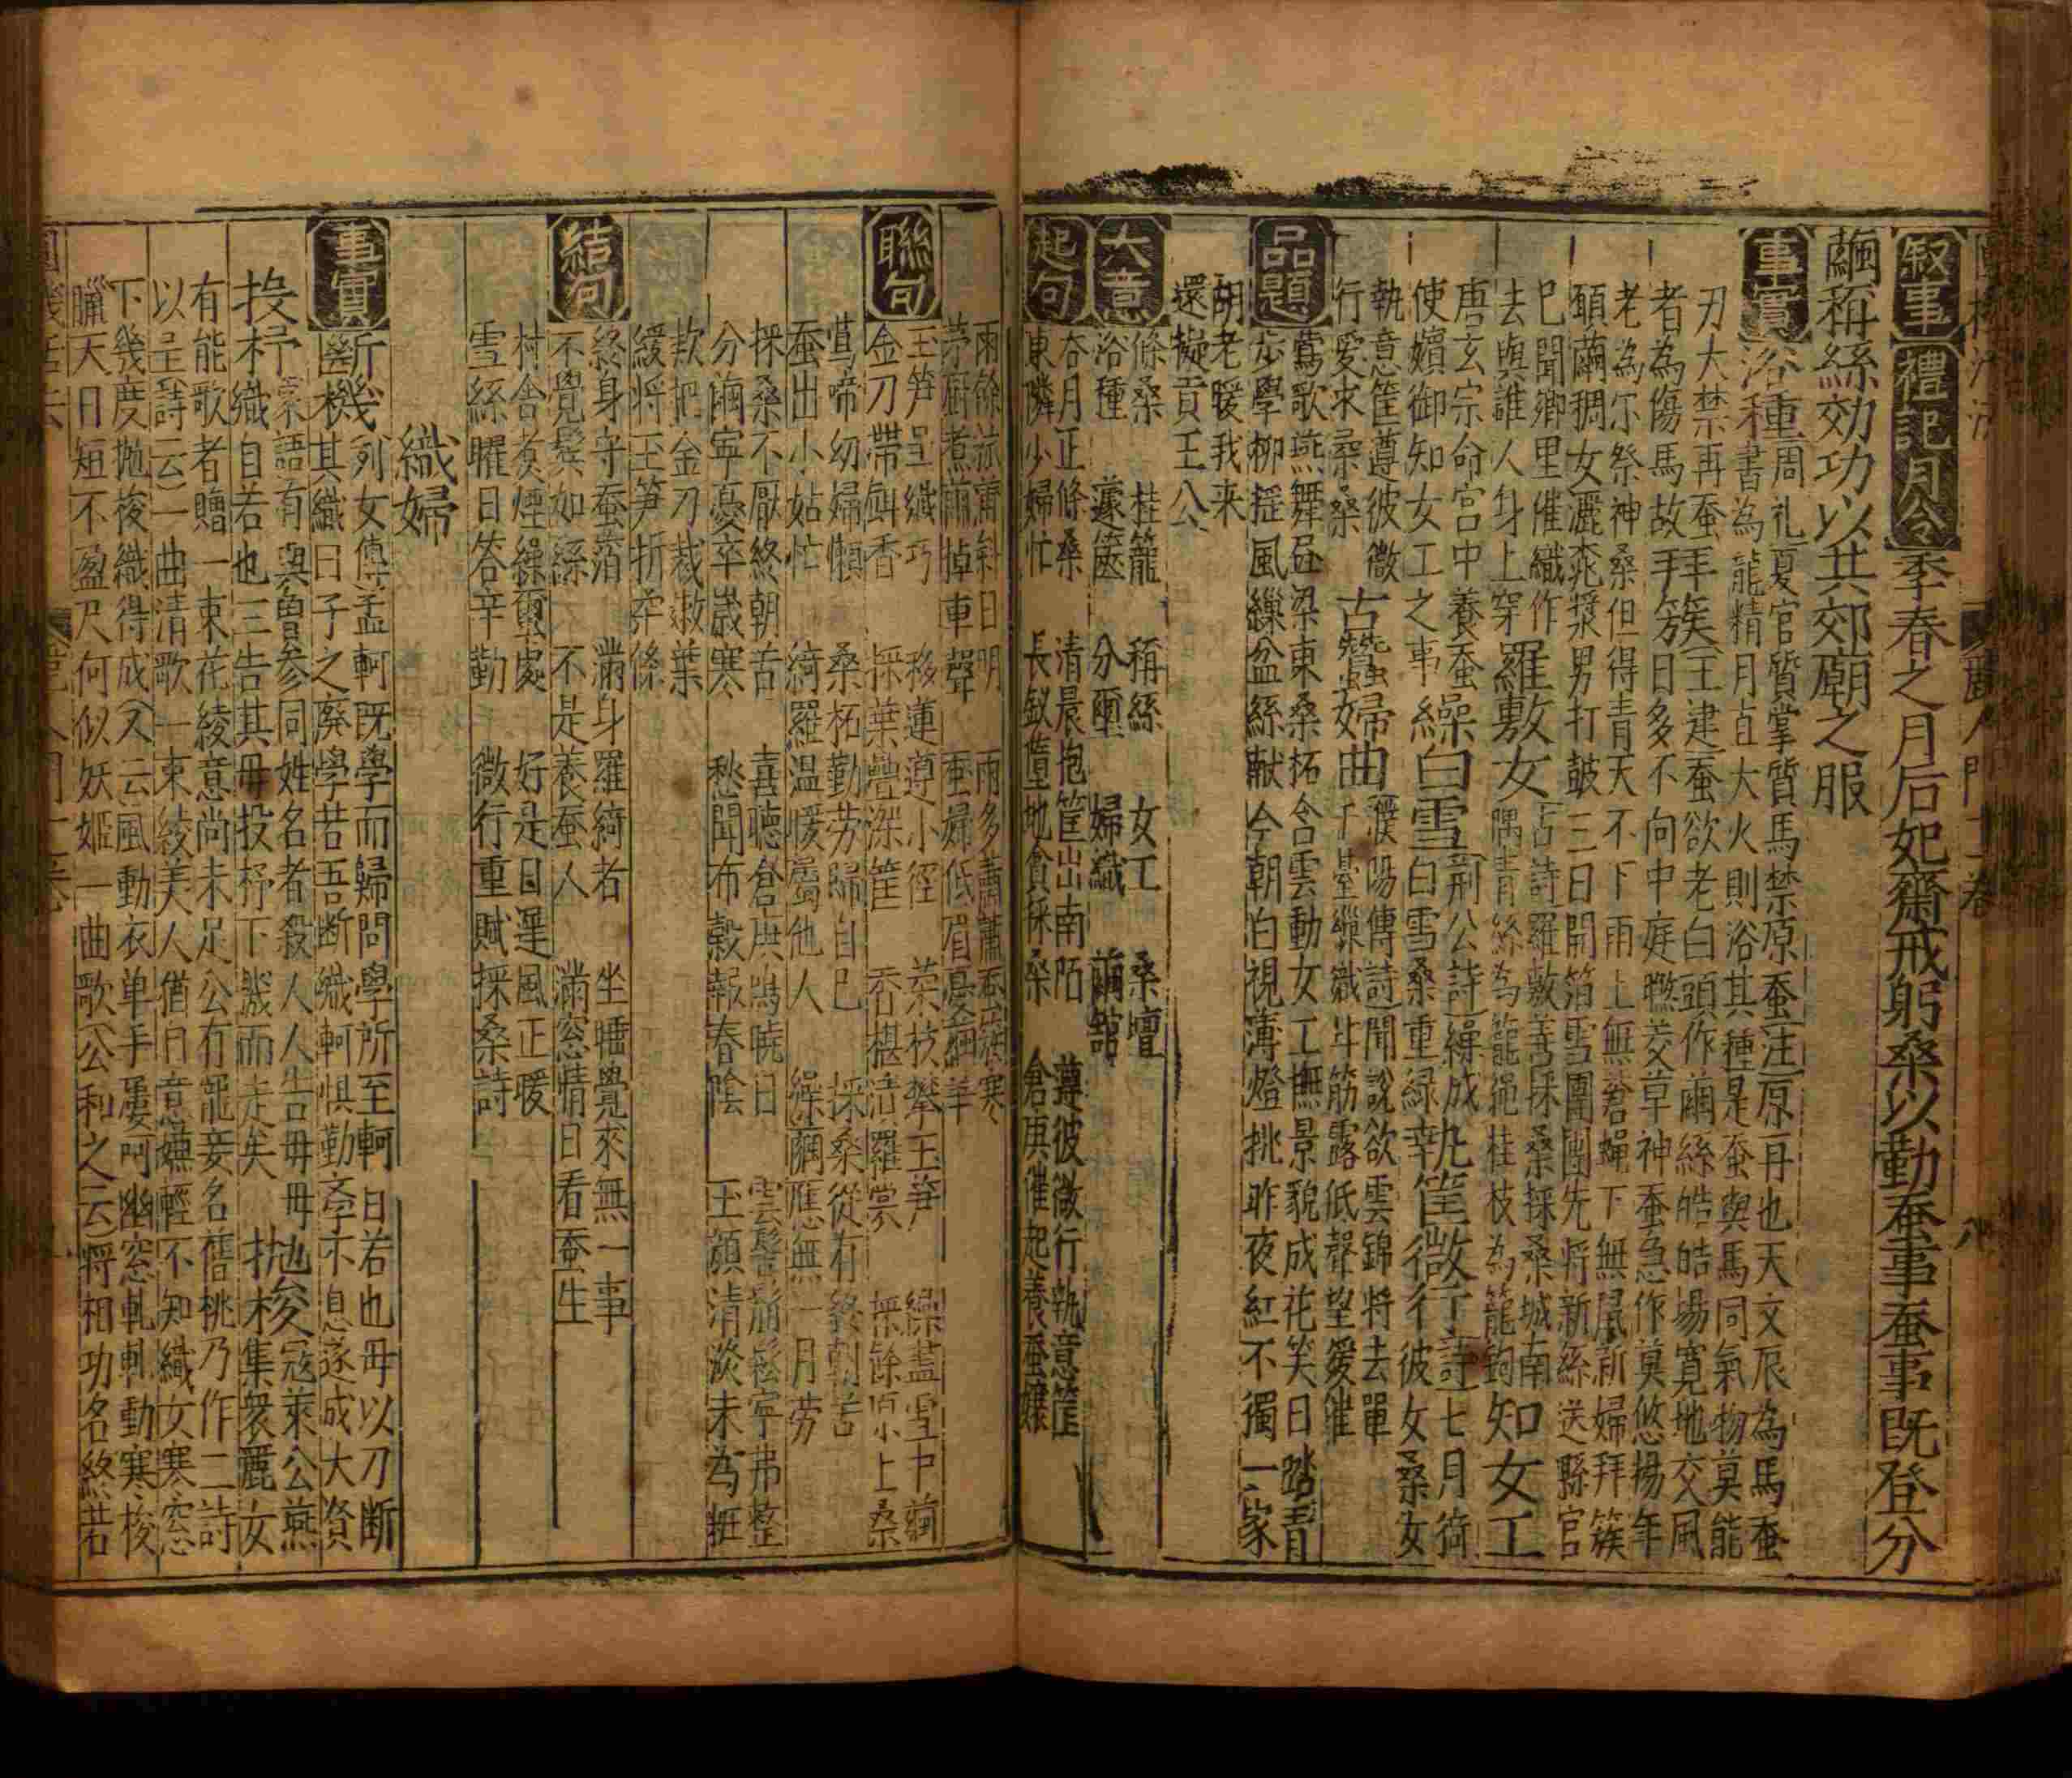 叙事 禮記月令 季春之月后妃齋戒躬桑以勤蚕事蚕事既登分
繭稱絲効功以共郊廟之服
事實 浴種 周礼夏官質掌質馬禁原蚕注原再也天文辰為馬蚕
書為龍精月直大火則浴其種是蚕與馬同氣物莫能
刃大禁再蚕
者為傷馬故 拜簇 王建蚕欲老白頭作繭絲皓皓場寬地交風
手簇日多不向中庭㬠茭草神蚕急作莫悠揚年
老為尔祭神桑但得青天不下雨上無蒼蝇下無鼠新婦拜簇
願繭稠女灑桃漿男打皷三日開箔雪團團先將新絲送縣官
已聞鄉里催織作
去與誰人身上穿 羅敷女 古詩羅敷善採桑採桑城南
隅青絲為籠繩桂枝為籠鉤 知女工
唐玄宗命宮中養蚕
使嬪御知女工之事 繰白雪 荊公詩繰成
白雪桑重緑 執筐微行 詩七月猗
彼女桑女
執意筐遵彼微
行爰求桑桑 古蠶婦曲 濮陽傳詩聞說欲雲錦將去單
千臺繅織斗筋露低聲望爰催
品題 鶯歌燕舞昼梁東桑柘含雲動女工撫景貌成花笑日踏青
步學柳揺風繅盆絲献今朝白視薄燈挑昨夜紅不獨一家
胡老暖我来
還擬貢王公
大意 條桑 桂籠 稱絲 女工 桑壇
浴種 蘧篋 分壐 婦織 繭舘
起句 杏月正條桑 清晨抱筐出南陌 遵彼微行執意筐
東隣少婦忙 長釵墮地貪採桑 倉庚催起養蚕孃
雨餘菰蒲斜日明 雨多蕭蕭蚕蔟寒
茅廚煮繭掉車聲 蚕婦低眉憂繭单
聯句 玉笋呈纎巧 移蓮遵小徑 菜枝攀玉笋 繰盡雪中繭
金刀帶斛香 採葉疊深筐 香椹沾羅裳 採餘原上桑
蔦啼幼婦懶 桑柘勤劳歸自已 採桑從有終朝苦
蚕出小姑忙 綺羅温暖屬他人 繰繭應無一月劳
採桑不厭終朝苦 喜聴倉庚鳴曉日 雲髻鬅鬆寜弗整
分繭寜憂卒嵗寒 愁聞布榖報春陰 玉顔清淡未為姃
欵把金刀裁嫩葉
緩將玉笋折柔條
結句 終身守蚕箔 滿身羅綺者 坐睡覺來無一事
不覺鬂如絲 不是養蚕人 滿窓情日看蚕生
村舍炙煙繰蠒處 好是日遲風正暖
雪絲曜日答辛勤 微行重賦採桑詩
織婦
事實 断機 列女傳孟軻既學而歸問學所至軻曰若也毋以刀断
其織曰子之廢學若吾断織軻惧勤孝不息遂成大贤
投杼 家語有與曽参同姓名者殺人人告毋毋
織自若也三告其毋投杼下機而走矣 抛梭 寇萊公燕
集衆麗女
有能歌者贈一束花綾意尚未足公有寵妾名蒨桃乃作二詩
以呈詩云一曲清歌一束綾美人猶曰意嫌輕不知織女寒窓
下幾度抛梭織得成又云風動衣单手屢呵幽窓軋軋動寒梭
臘天日短不盈尺何似妖姬一曲歌公和之云將相功名終若